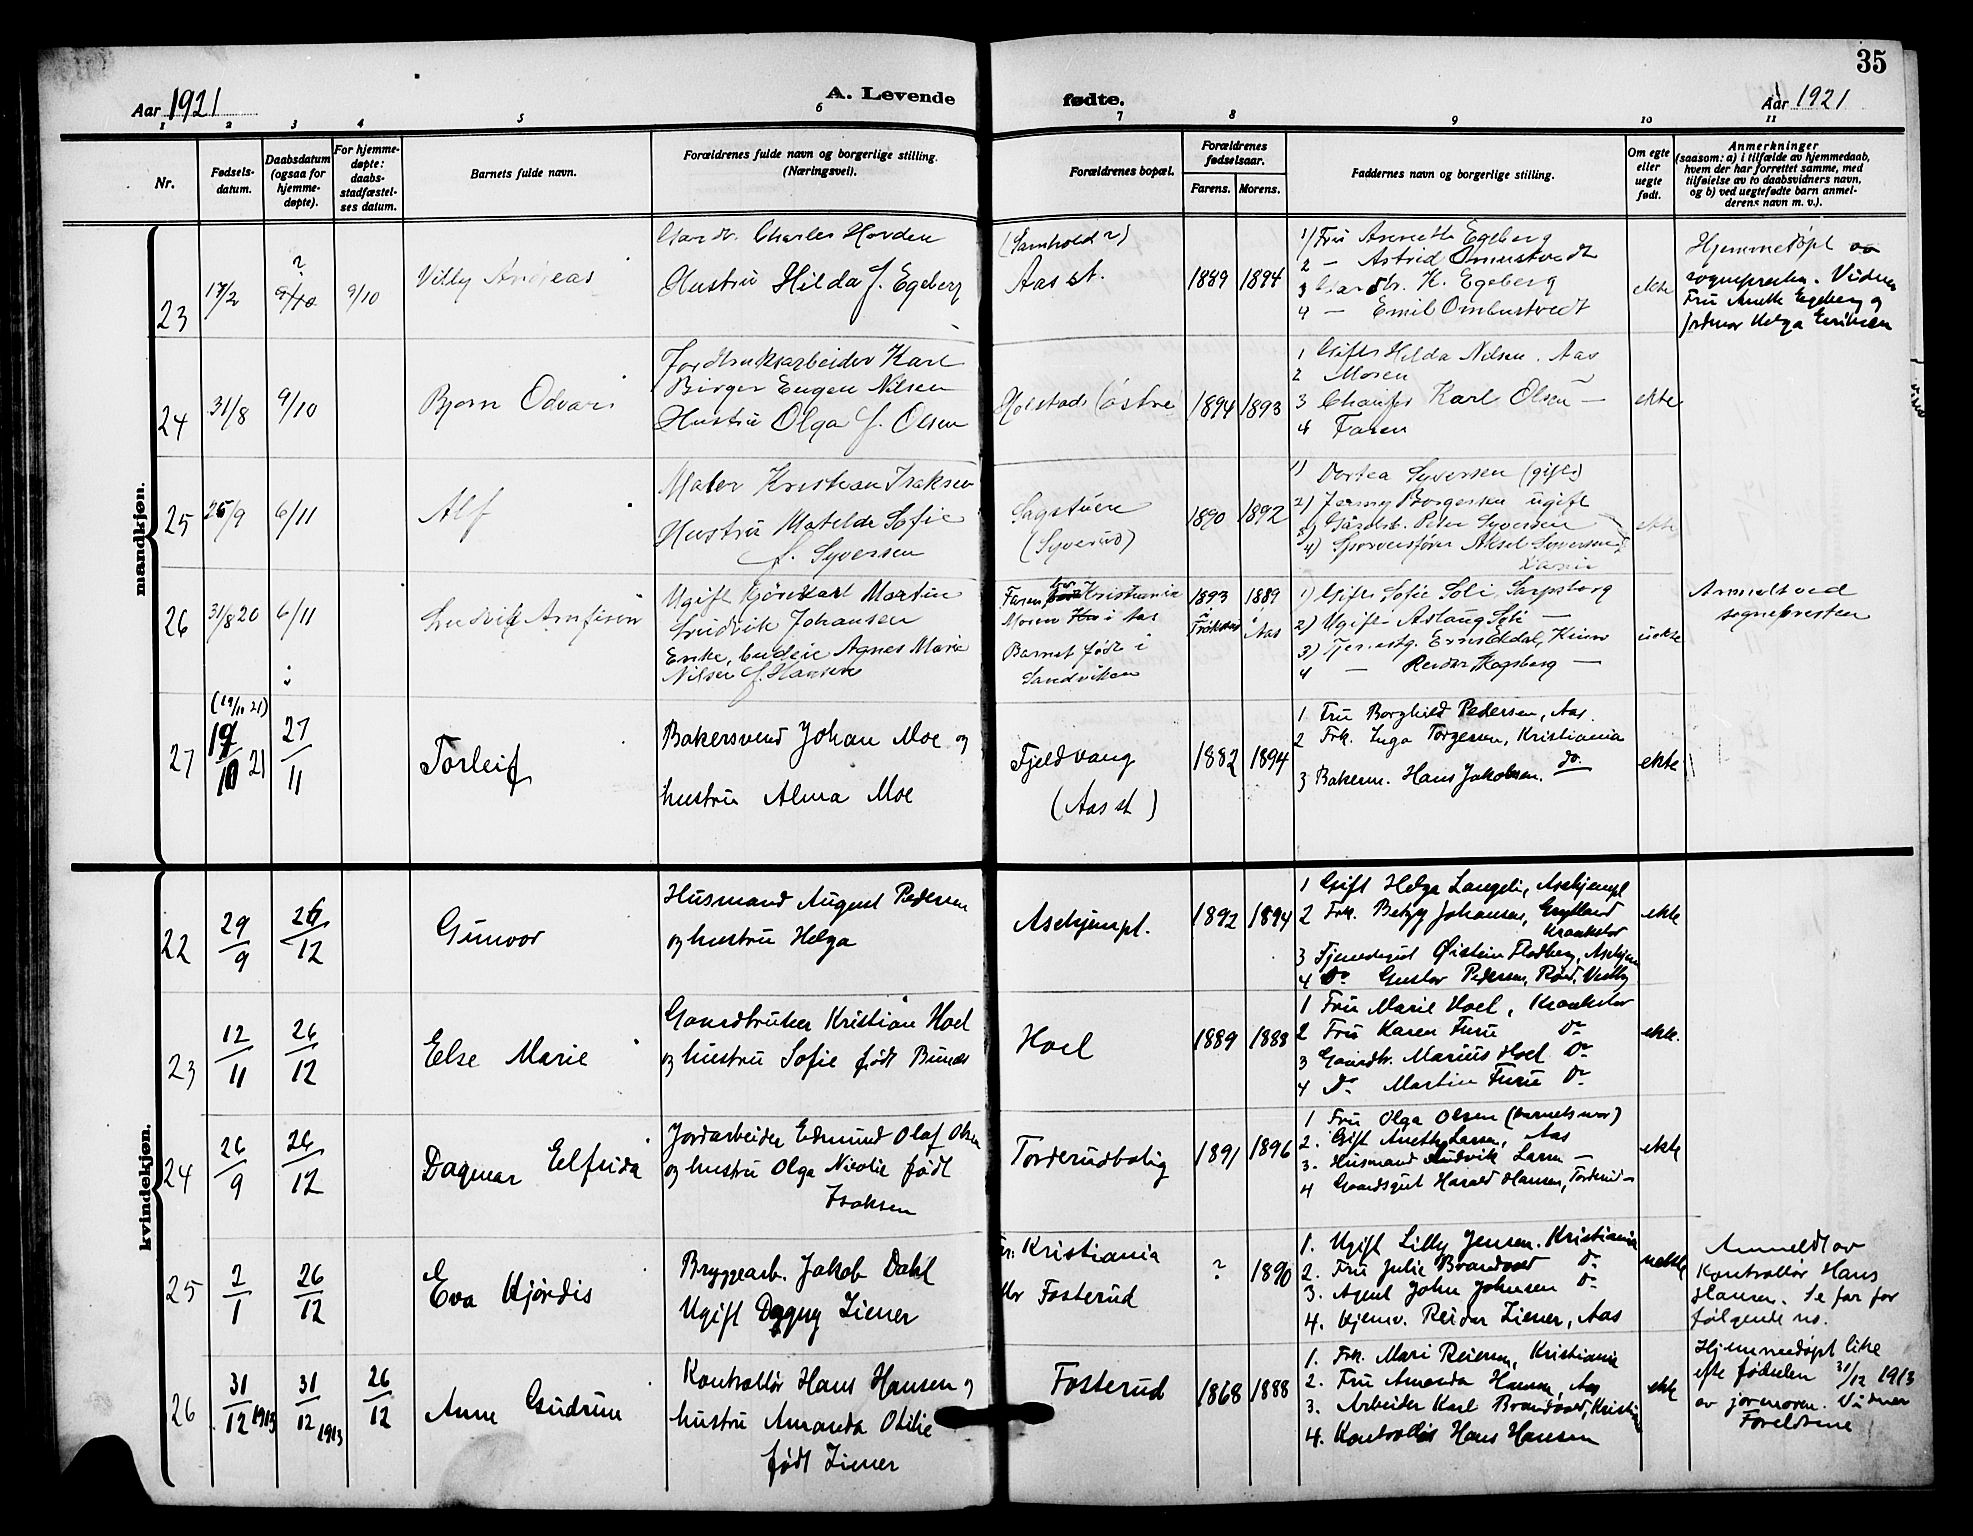 35
Aar 1921
A. Levende fødte.
Aar 1921
1 2 3 4 5 6 7 8 9 10 11
Nr.
Fødsels-
datum.
Daabsdatum
(ogsaa for
hjemme-
døpte).
For hjemme-
døpte:
daabs-
stadfæstel-
ses datum.
Barnets fulde navn.
Forældrenes fulde navn og borgerlige stilling.
(Næringsvei).
Forældrenes bopæl.
Forældrenes
fødselsaar.
Farens. Morens.
Faddernes navn og borgerlige stilling.
Om egte
eller
uegte
født.
Anmerkninger
(saasom: a) i tilfælde av hjemmedaab,
hvem der har forrettet samme, med
tilføielse av to daabsvidners navn,
og b) ved uegtefødte barn anmel-
derens navn m. v.).
mandkjøn.
23
17/2
?
9/10
9/10
Villy Andreas
Gardbr. Charles Hovden
Hustru Hilda f. Egeberg
(Samhold ?)
Aas st.
1889 1894
1) Fru Annette Egeberg
2 — Astrid Ombustvedt
3 Gardbr. K. Egeberg
4 — Emil Ombustvedt
ekte
Hjemmedøpt av
sognepresten. Vidner
Fru Anette Egeberg og
jordmor Helga Eriksen
24
31/8
9/10
Bjørn Odvar
Jordbruksarbeider Karl
Birger Eugen Nilsen
Hustru Olga f. Olsen
Holstad (østre)
1894 1893
1 Gifte Hilda Nilsen. Aas
2 Moren
3 Chauffør Karl Olsen —
4 Faren
ekte
25
25/9
6/11
Alf
Maler Kristian Isaksen
Hustru Matelde Sofie
f. Syversen
Sagstuen
(Syverud)
1890 1892
1) Dortea Syversen (gift)
2) Jenny Borgersen ugift
3) Gårdbr. Peter Syversen
4) Aksel Syversen
ekte
26
31/8 20
6/11
Ludvik Arnfinn
Ugift Martin
Ludvik Johansen
Enke, budeie Agnes Marie
Nilsen f. Hansen
Faren bor Kristiania
Moren i Aas
Barnet født i
Sandviken
1893 1889
i Aas
1) Gifte Sofie Soli, Sarpsborg
2) Ugift Aslaug Soli —
3) Tjenestg.
4 — Reidar Hagsberg —
uekte
Anmeldt ved
sognepresten
27
(19/11 21)
19/10 21
27/11
Torleif
Bakersvend Johan Moe og
hustru Alma Moe
Fjeldvang
(Aas st)
1882 1894
1 Fru Borghild Pedersen, Aas.
2 Frk. Inga Torgersen, Kristiania
3 Bakerm. Hans Jakobsen. do.
ekte
kvindekjøn.
22
29/9
26/12
Gunvor
Husmand August Pedersen
og hustru Helga
Askjempl.
1892 1894
1 Gift Helga Langeli, Askjempl
2 Frk. Betzy Johansen,
Kraakstad
3 Tjenestegut Øistein Flodberg, Askjem
4 Do Gustav Pedersen, Røed, Vestby
ekte
23
12/11
26/12
Else Marie
Gaardbruker Kristian Hoel
og hustru Sofie født Bunæs
Hoel
1889 1888
1 Fru Marie Hoel, Kraakstad
2 Fru Karen Furu Do
3 Gaardbr. Marius Hoel Do
4 Do Martin Furu Do
ekte.
24
26/9
26/12
Dagmar Elfrida
Jordarbeider Edmund Olaf Olsen
og hustru Olga Nicolie født
Isaksen
Torderudbolig
1891 1896
1 Fru Olga Olsen (barnets mor)
2. Gift Anette Larsen, Aas
3. Husmand Ludvik Larsen —
4 Gaardsgut Harald Hansen, Torderud —
ekte
25
2/1
26/12
Eva Hjørdis
Bryggearb. Jakob Dahl
Ugift Dagny Ziener
Far: Kristiania
Mor Fosterud
? 1890
1. Ugift Lilly Jensen. Kristiania
2. Fru Julie Brandvold Do
3. Agent John Johnsen Do
4. Hjemv. Reidar Ziener, Aas
uekte
Anmeldt av
Kontrollør Hans
Hansen. Se far for
følgende no.
26
31/12 1913
31/12 1913
26/12
Anne Gudrun
Kontrollør Hans Hansen og
hustru Amanda Otilie
født Ziener
Fosterud
1868 1888
1. Frk. Mari Reiersen, Kristiania
2. Fru Amanda Hansen, Aas
3. Arbeider Karl Brandvold, Kristiania
4. Kontrollør Hans Hansen
ekte
Hjemmedøpt like
efte fødselen 31/12 1913
av jormoren. Vidner
Foreldrene